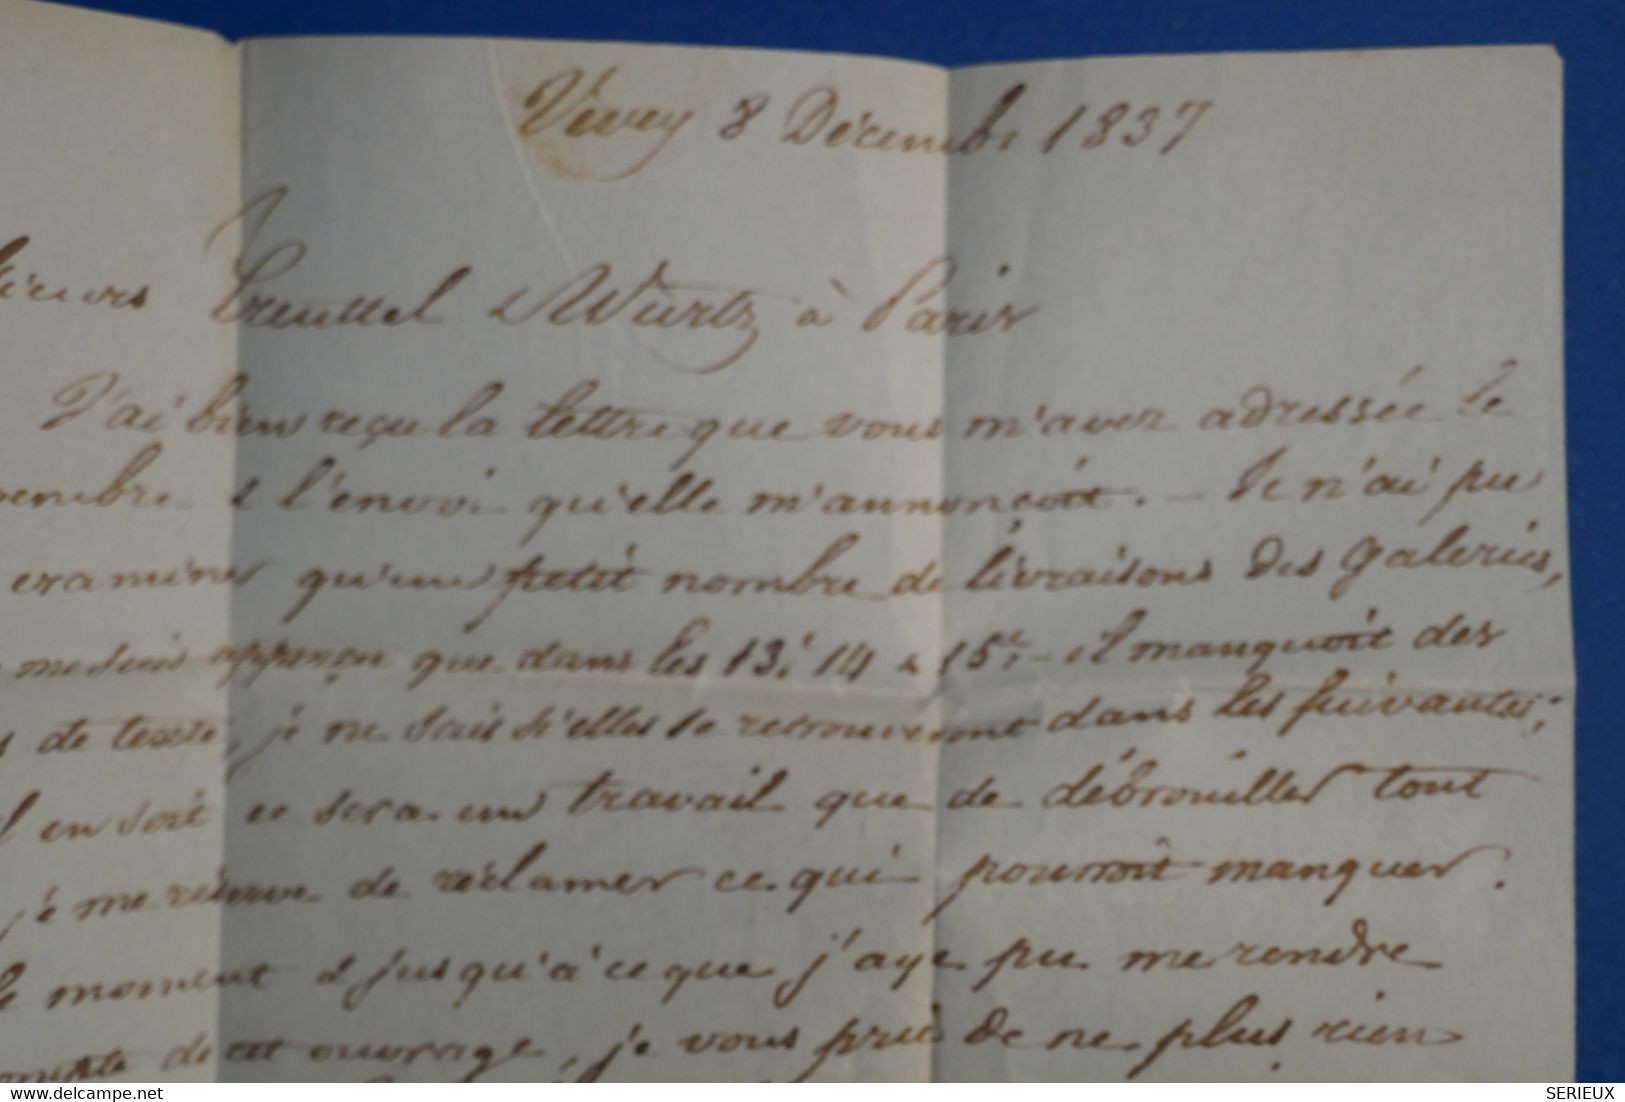 Vévey 8 Décembr 1837
Treuttel & Wurtz à Paris
J'ai bien reçu la lettre que vous m'avez adressée le
& l'envoi qu'elle m'annonçoit. – Je n'ai pu
examiner qu'un petit nombre de livraisons des Galeries,
me suis apperçu que dans les 13e 14 & 15e – il manquoit des
de texte, je ne sais si elles se retrouveront dans les suivantes;
en soit ce sera un travail que de débrouiller tout
je me réserve de réclamer ce qui pourroit manquer.
le moment & jusqu'à ce que j'aye pu me rendre
de cet ouvrage, je vous prie de ne plus rien
www.delcampe.net
SERIEUX